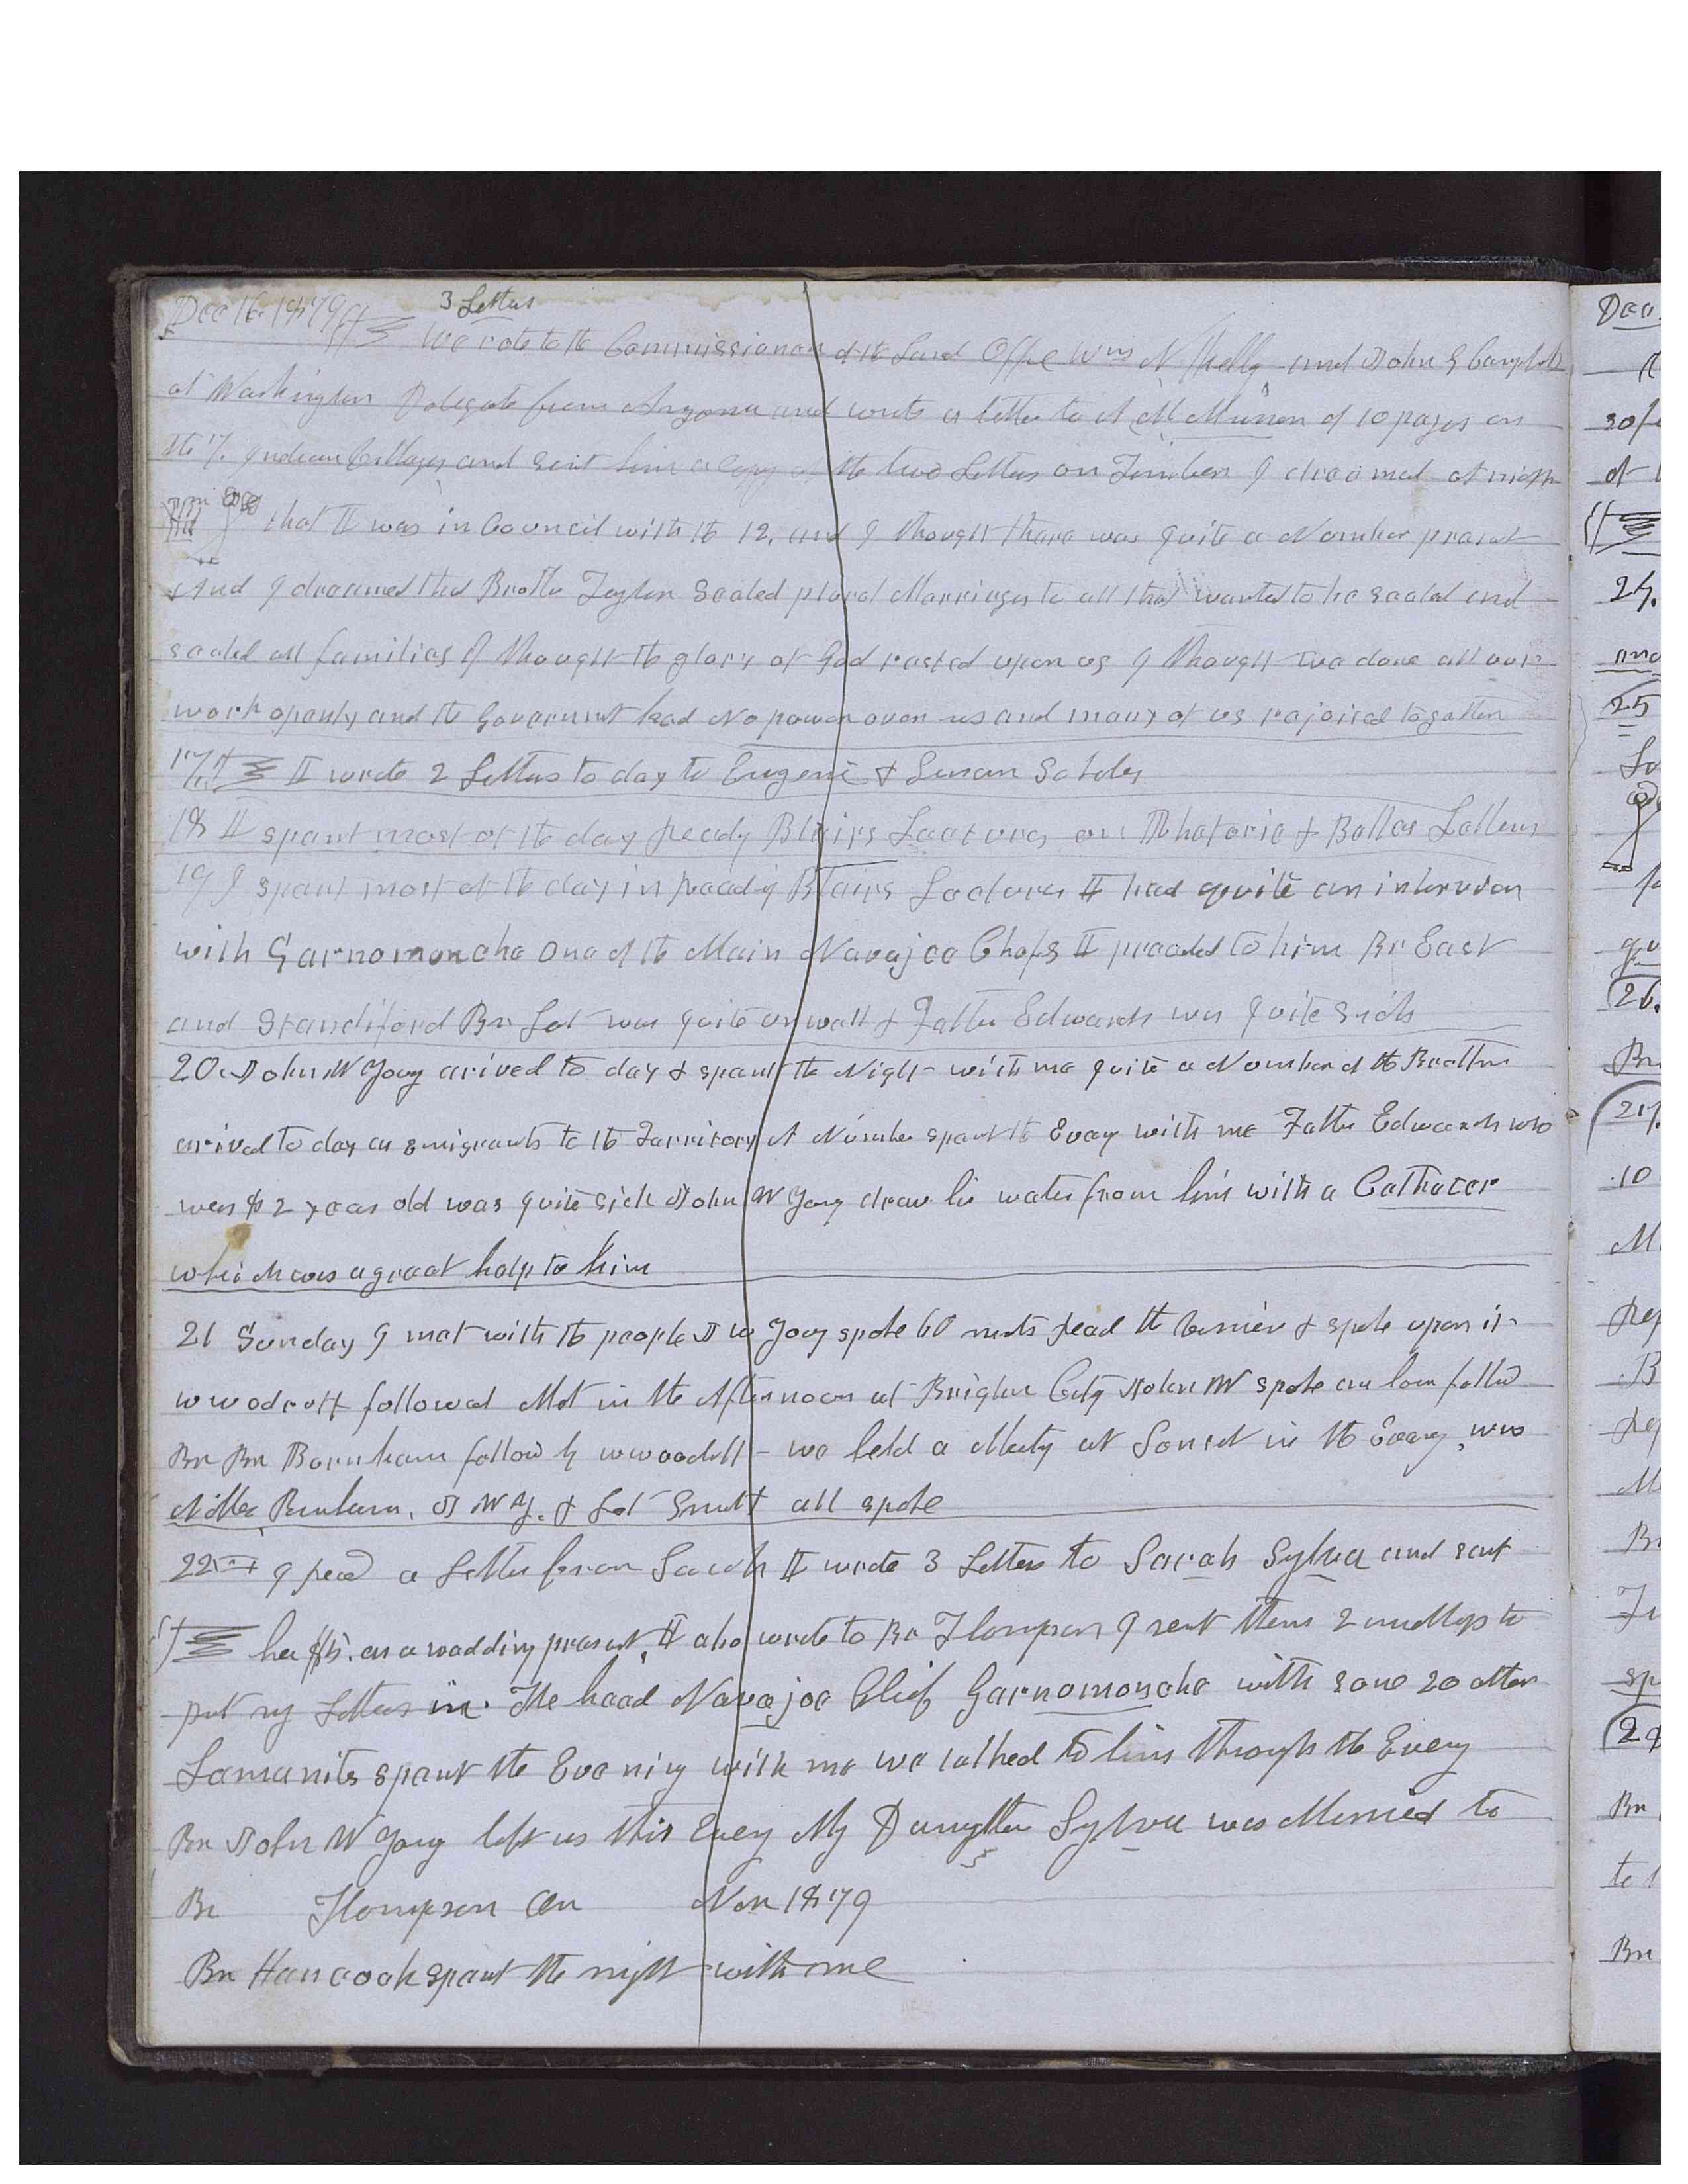 Dec 16. 1879 3 Letters
We rote to the Commissioner of the Land Office Wm N Kelly and John G Campbell
at Washington Delegate from Arizona and wrote a letter to A M Musser of 10 pages on
the 7 Indian Villages and sent him a copy of the two Letters on Timber I dreamed at night
that I was in Council with the 12, and I thought thare was quite a Number present
And I dreamed that Brother Taylor Sealed plural Marriages to all that wanted to be sealed and
sealed all families I thought the glory of God rested upon us I thought we done all our
work openly and the Government had No power over us and many of us rejoiced together
17 I wrote 2 Letters to day to Eugenie & Susan Scholes
18 I spent most of the day Readg Blairs Lectures on Rhetoric & Belles Letters
19 I spent most of the day in Readig Blairs Lectures I had quite an interview
with Garnomoncha one of the Main Navajoe Chiefs I preached to him Br East
and Standiford Br Lot was quite unwell & Father Edwards was quite sick
20. John W Young arived to day & spent the Night with me quite a Number of the Brethren
arived to day as emigrants to the Territory A Number spent the Eveng with me Father Edwards who
was 82 years old was quite sick John W Young drew his water from him with a Catheter
which was a great help to him
21 Sunday I met with the people J W Young spoke 60 minuts Read the and spoke upon it
W Woodruff followed Met in the Afternoon at Brigham City John W spoke one hour followed
Br Burnham follow by W Woodruff we held a Meeting at Sunset in the Eveng, WW
Burnham, J W Y. & Lot Smith all spoke
22nd I Recd a Letter from Sarah I wrote 3 Letters to Sarah Sylvia and sent
her $5. as a wedding present, I also wrote to Br Thompson I sent them 2 to
put my Letters in. The head Navajoe Chief Garnomoncha with some 20 other
Lamanites spent the Evening with me we talked to him through the Eveng
Br John W Young left us this Eveng My Daughter Sylvia was Married to
Br Thompson on Nov 1879
Br Hancock spent the night with me